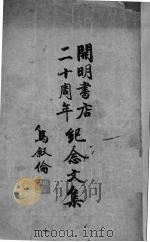 開明書店
二十周年紀念文集
馬叙倫